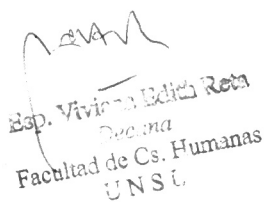 Esp. Viviana Edith Reta
Decana
Facultad de Cs. Humanas
UNSL